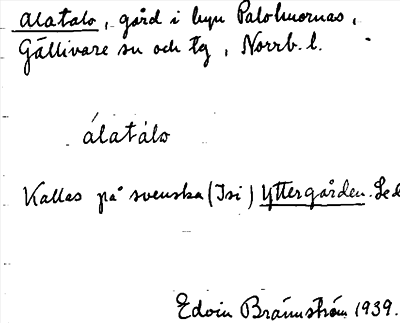 Alatalo, gård i byn Palohuornas,
Gällivare sn och tg, Norrb. l.
álatálo
Kallas på svenska (Isi) Yttergården. Se d
Edvin Brännström 1939.